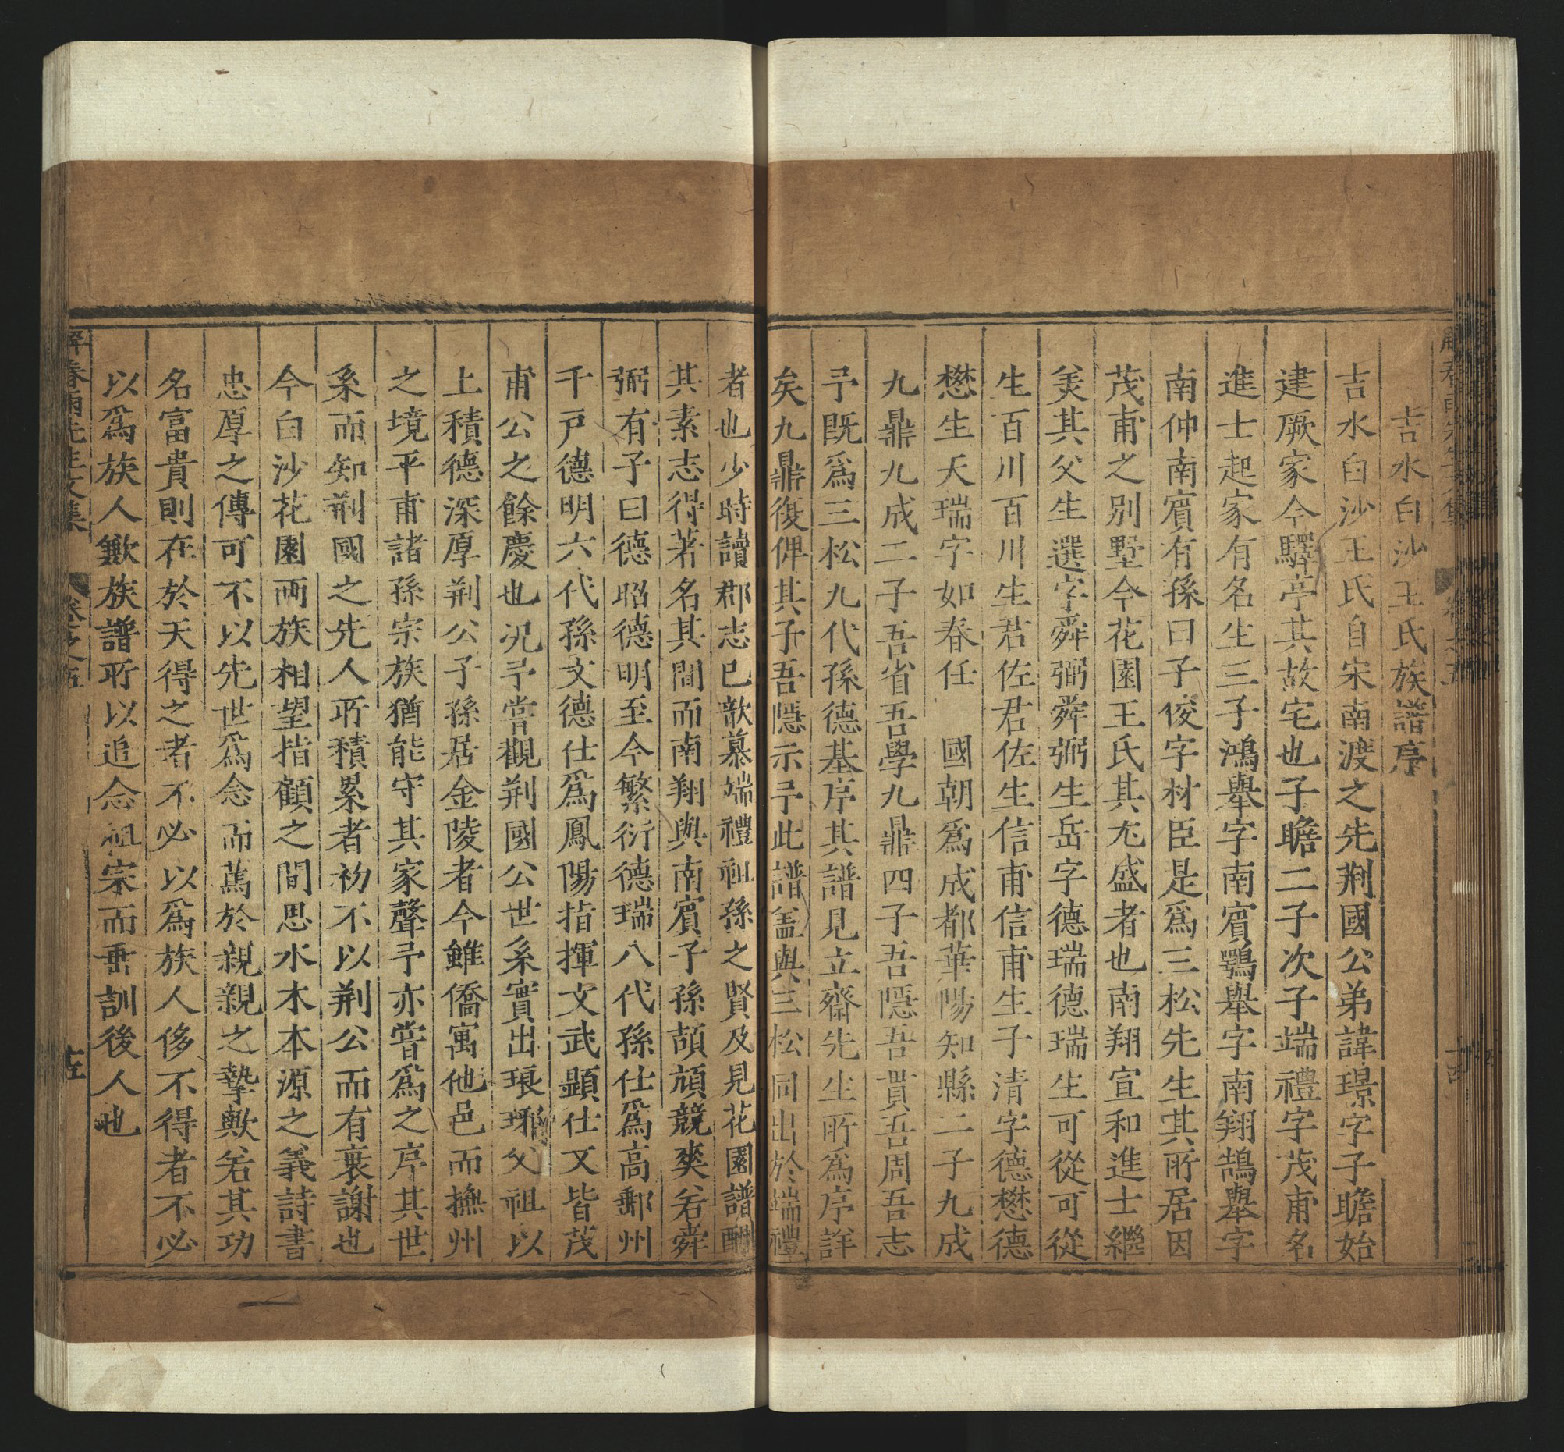 吉水白沙王氏族譜序
吉水白沙王氏自宋南渡之先荆國公弟諱璟字子瞻始
建厥家今驛亭其故宅也子瞻二子次子端禮字茂甫名
進士起家有名生三子鴻舉字南賓鶚舉字南翔鵠舉字
南仲南賓有孫曰子俊字材臣是爲三松先生其所居因
茂甫之别墅今花園王氏其尤盛者也南翔宣和進士繼
美其父生選字舜弼舜弼生岳字德瑞德瑞生可從可從
生百川百川生君佐君佐生信甫信甫生子清字德懋德
懋生天瑞字如春任　國朝爲成都華陽知縣二子九成
九鼎九成二子吾省吾學九鼎四子吾隱吾貫吾周吾志
予既爲三松九代孫德基序其譜見立齋先生所爲序詳
矣九鼎復俾其子吾隱示予此譜盖與三松同出於端禮
者也少時讀郡志已歆慕端禮祖孫之賢及見花園譜酬
其素志得著名其間而南翔與南賓子孫頡頏競爽若舜
弼有子曰德昭德明至今繁衍德瑞八代孫仕爲高郵州
千戸德明六代孫文德仕爲鳳陽指揮文武顯仕又皆茂
甫公之餘慶也况予嘗觀荆國公世系實出琅琊父祖以
上積德深厚荆公子孫居金陵者今雖僑寓他邑而撫州
之境平甫諸孫宗族猶能守其家聲予亦嘗爲之序其世
系而知荆國之先人所積累者初不以荆公而有衰謝也
今白沙花園两族相望指顧之間思水木本源之義詩書
忠厚之傳可不以先世爲念而萬於親親之摯歟若其功
名富貴則在於天得之者不必以爲族人侈不得者不必
以爲族人歉族譜所以追念祖宗而垂訓後人也
解春雨先生文集　卷之五　十五